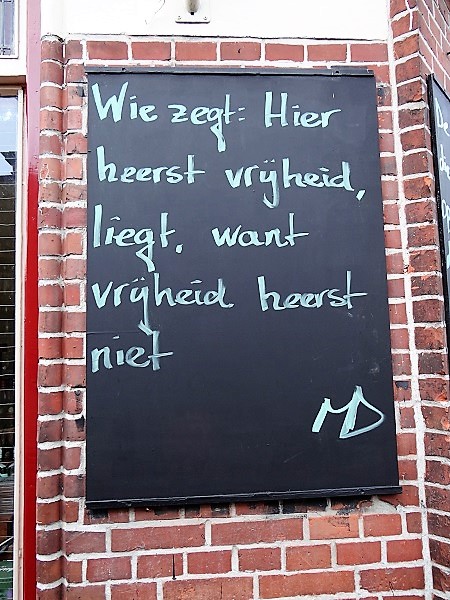 Wie zegt: Hier
heerst vrijheid,
liegt, want
vrijheid heerst
niet
MD